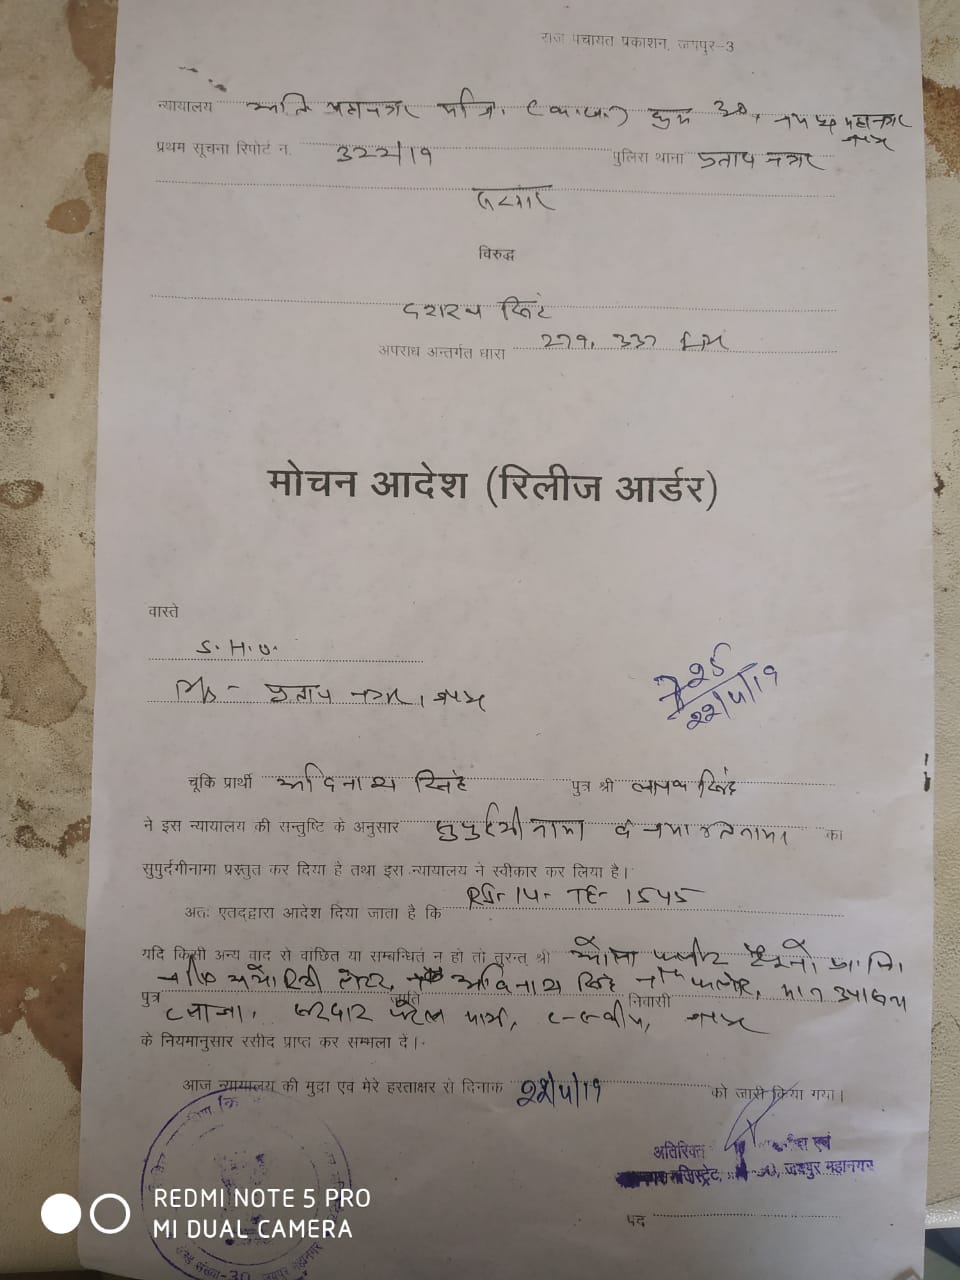 राज पंचायत प्रकाशन, जयपुर-3
न्यायालय अति महानगर मजि. क्रम 30, जयपुर महानगर
जयपुर
प्रथम सूचना रिपोर्ट न. 322/19 पुलिस थाना प्रताप नगर
सरकार
विरुद्ध
दशरथ सिंह
अपराध अन्तर्गत धारा 279, 337
मोचन आदेश (रिलीज आर्डर)
वास्ते
S. H. O.
PS - प्रताप नगर, जयपुर
22/4/19
चूंकि प्रार्थी अविनाश सिंह पुत्र श्री सिंह
ने इस न्यायालय की सन्तुष्टि के अनुसार सुपुर्दगीनामा व जमानतनामा का
सुपुर्दगीनामा प्रस्तुत कर दिया है तथा इस न्यायालय ने स्वीकार कर लिया है।
अतः एतद्द्वारा आदेश दिया जाता है कि RJ-14-TE-1545
यदि किसी अन्य वाद से वांछित या सम्बन्धित न हो तो तुरन्त श्री प्रा. लि.
अविनाश सिंह
पुत्र जाति निवासी
सरदार पटेल मार्ग, सी-स्कीम, जयपुर
के नियमानुसार रसीद प्राप्त कर सम्भला दे।
आज न्यायालय की मुद्रा एवं मेरे हस्ताक्षर से दिनांक 22/4/19 को जारी किया गया।
अतिरिक्त एवं
मजिस्ट्रेट, जयपुर महानगर
पद
REDMI NOTE 5 PRO
MI DUAL CAMERA